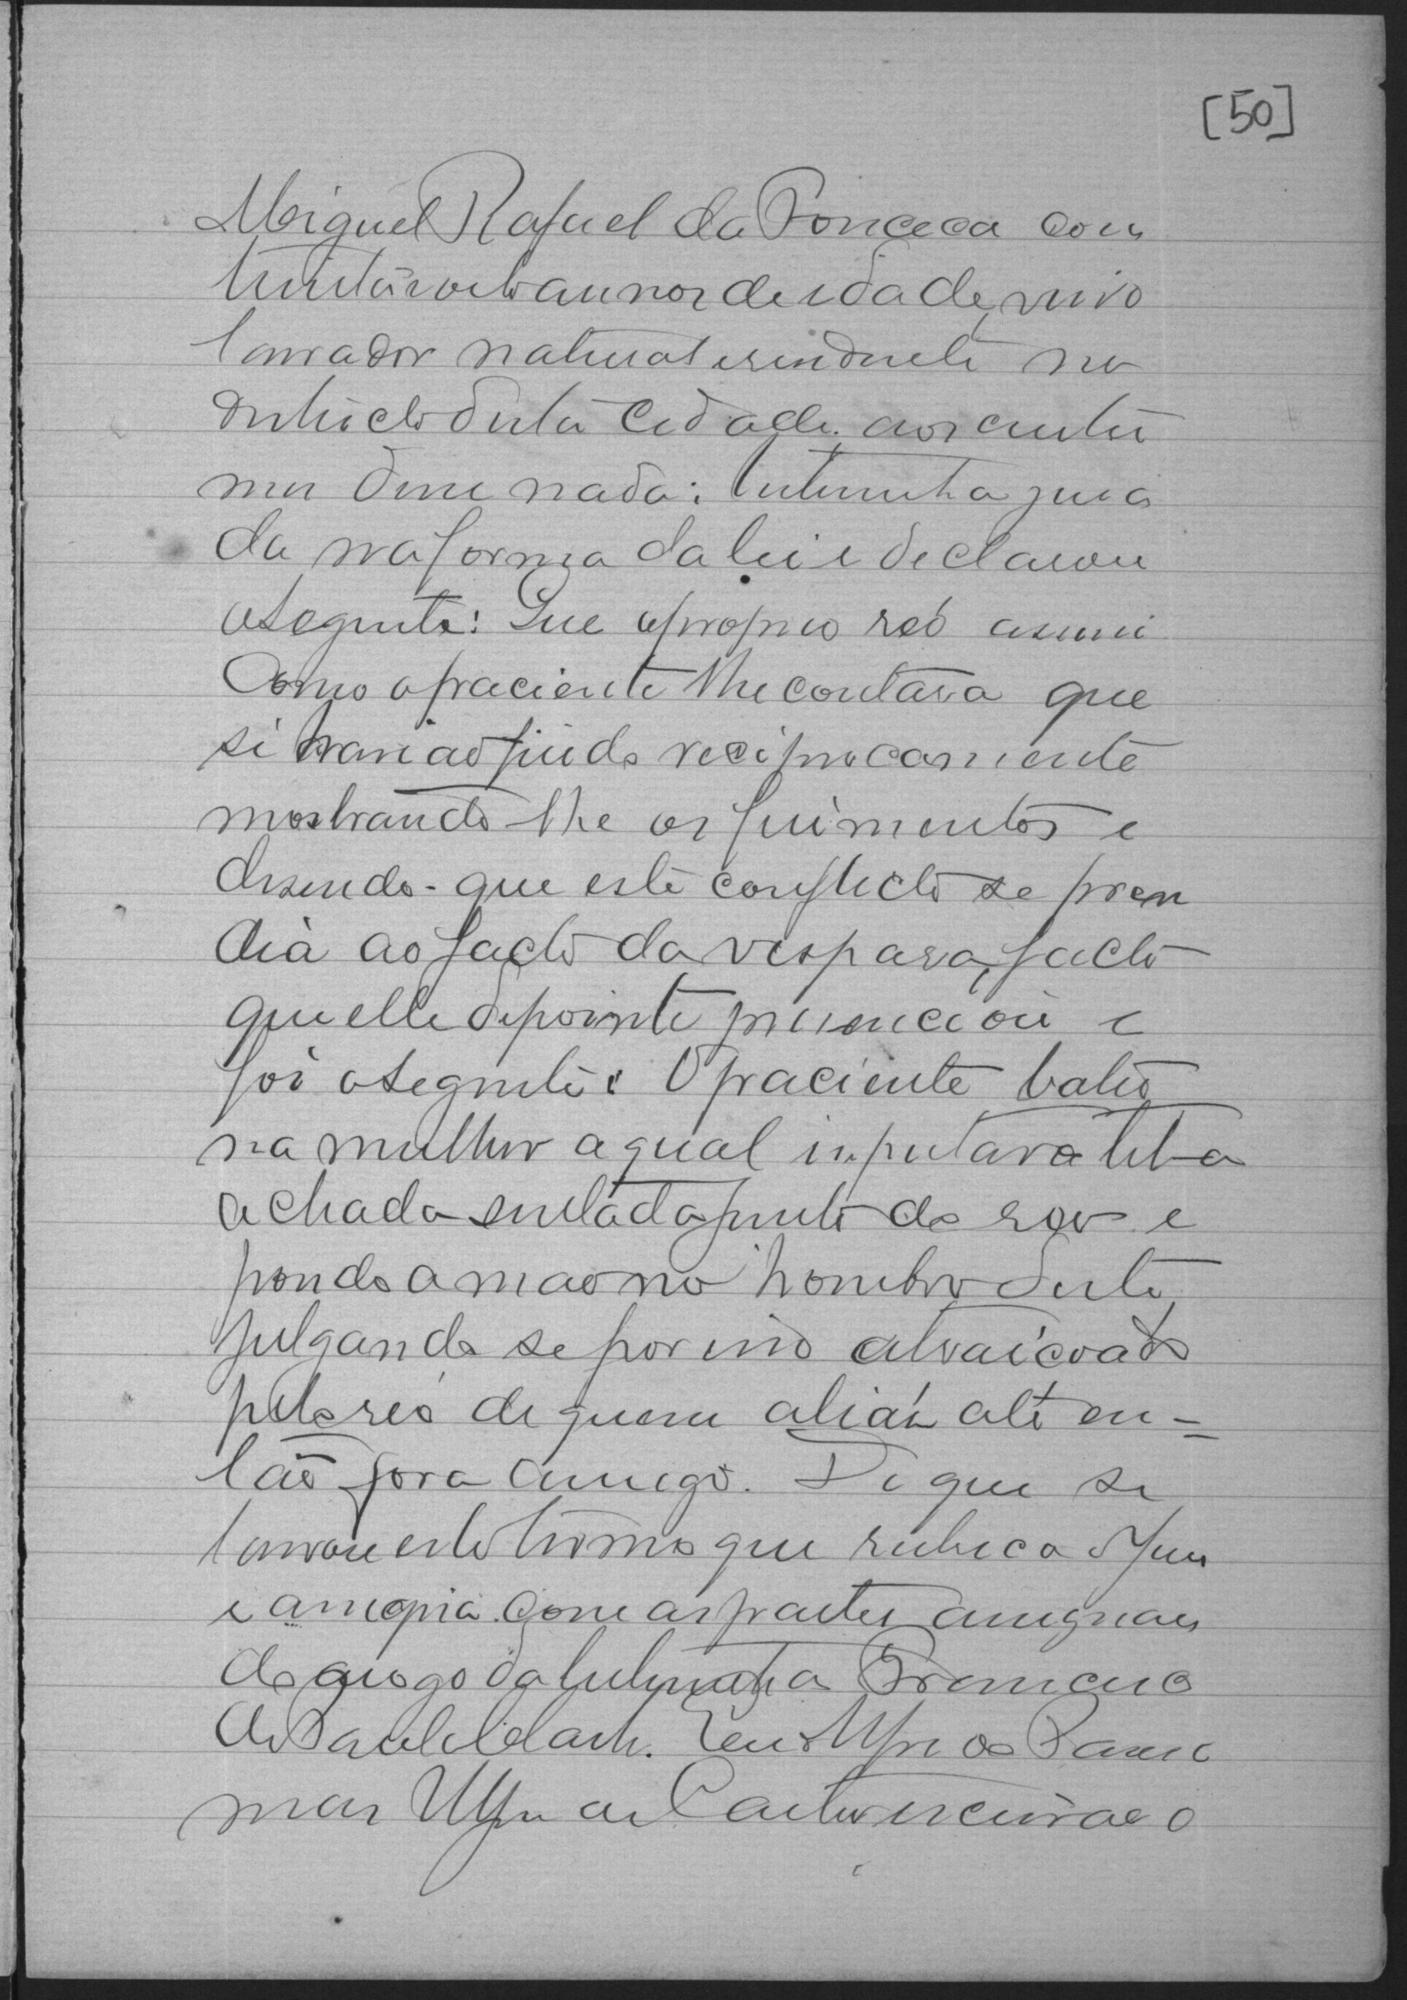 [50]
Miguel Rafael da Fonceca com
trinta e oito annos de idade, viuvo
lavrador natural e residente no
districto desta cidade. aos custu
mes disse nada: testemunha jura
da na forma da lei e declarou
o seguinte: Que o proprio reó assim
como o paciente lhe contara que
si haviao firido reciprocamente
mostrando-lhe os firimentos e
disendo-que este conflicto se pren
dia ao facto da vespara, facto
que elle depoente presenciou e
foi o seguinte: O paciente bateo
na mulher a qual inputara tel-a
achada sentada junto do reo e
pondo a mao no hombro deste,
julgando se por isso atraicoado
pelo reó de quem aliás até en-
tão fora amigo. De que se
lavrou este termo que rubrica o Juis
e assigna com as partes assignan
do a rogo da testemunha Francisco
de Paula
mos